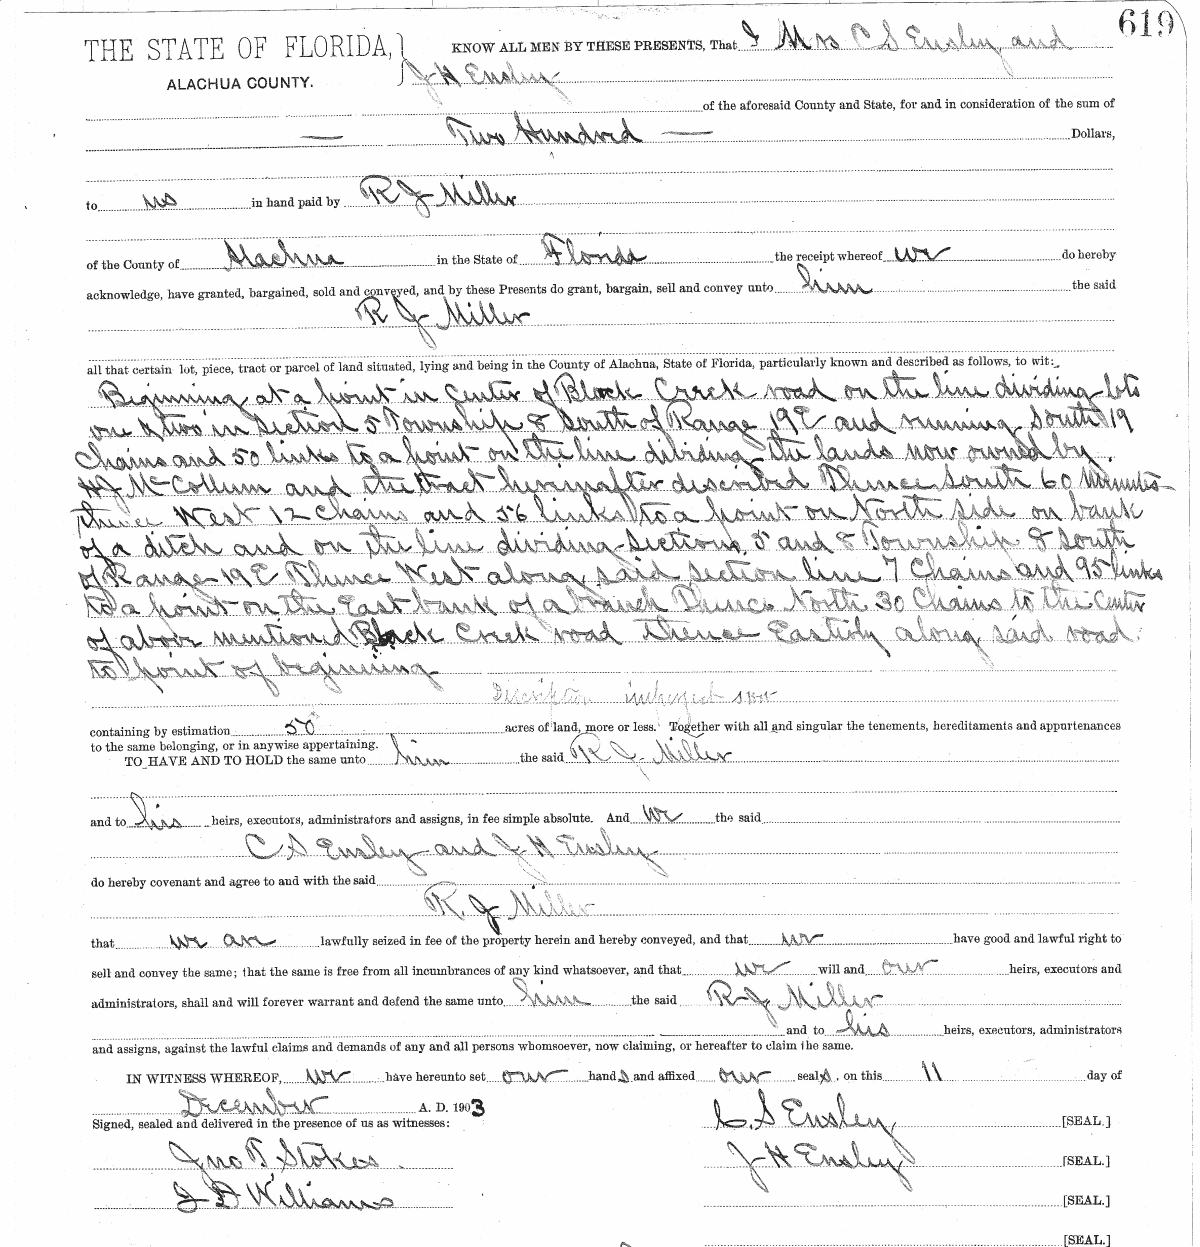 619
THE STATE OF FLORIDA, } KNOW ALL MEN BY THESE PRESENTS, That I Mrs C S Ensley and
ALACHUA COUNTY. J H Ensley
of the aforesaid County and State, for and in consideration of the sum of
— Two Hundred — Dollars,
to us in hand paid by R J Miller
of the County of Alachua in the State of Florida the receipt whereof we do hereby
acknowledge, have granted, bargained, sold and conveyed, and by these Presents do grant, bargain, sell and convey unto him the said
R J Miller
all that certain lot, piece, tract or parcel of land situated, lying and being in the County of Alachua, State of Florida, particularly known and described as follows, to wit:
Beginning at a point in Center of Block Creek road on the line dividing lots
one & two in Section 5 Township 8 South of Range 19E and running South 19
Chains and 50 links to a point on the line dividing the lands now owned by
H J McCollum and the tract hereinafter described Thence South 60 Minutes
thence West 12 Chains and 56 links to a point on North side on bank
of a ditch and on the line dividing Sections 5 and 8 Township 8 South
of Range 19E Thence West along said section line 7 Chains and 95 links
to a point on the East bank of a branch Thence North 30 Chains to the Center
of above mentioned Black Creek road thence Eastidy along said road
to point of beginning
Discription imperfect
containing by estimation 50 acres of land, more or less. Together with all and singular the tenements, hereditaments and appurtenances
to the same belonging, or in anywise appertaining.
TO HAVE AND TO HOLD the same unto him the said R J Miller
and to his heirs, executors, administrators and assigns, in fee simple absolute. And we the said
C S Ensley and J H Ensley
do hereby covenant and agree to and with the said
R. J Miller
that we are lawfully seized in fee of the property herein and hereby conveyed, and that we have good and lawful right to
sell and convey the same; that the same is free from all incumbrances of any kind whatsoever, and that we will and our heirs, executors and
administrators, shall and will forever warrant and defend the same unto him the said R J Miller
and to his heirs, executors, administrators
and assigns, against the lawful claims and demands of any and all persons whomsoever, now claiming, or hereafter to claim the same.
IN WITNESS WHEREOF, we have hereunto set our hands and affixed our seals, on this 11 day of
December A. D. 1903 C. S Ensley [SEAL.]
Signed, sealed and delivered in the presence of us as witnesses:
Jno T. Stokes J H Ensley [SEAL.]
J D Williams [SEAL.]
[SEAL.]